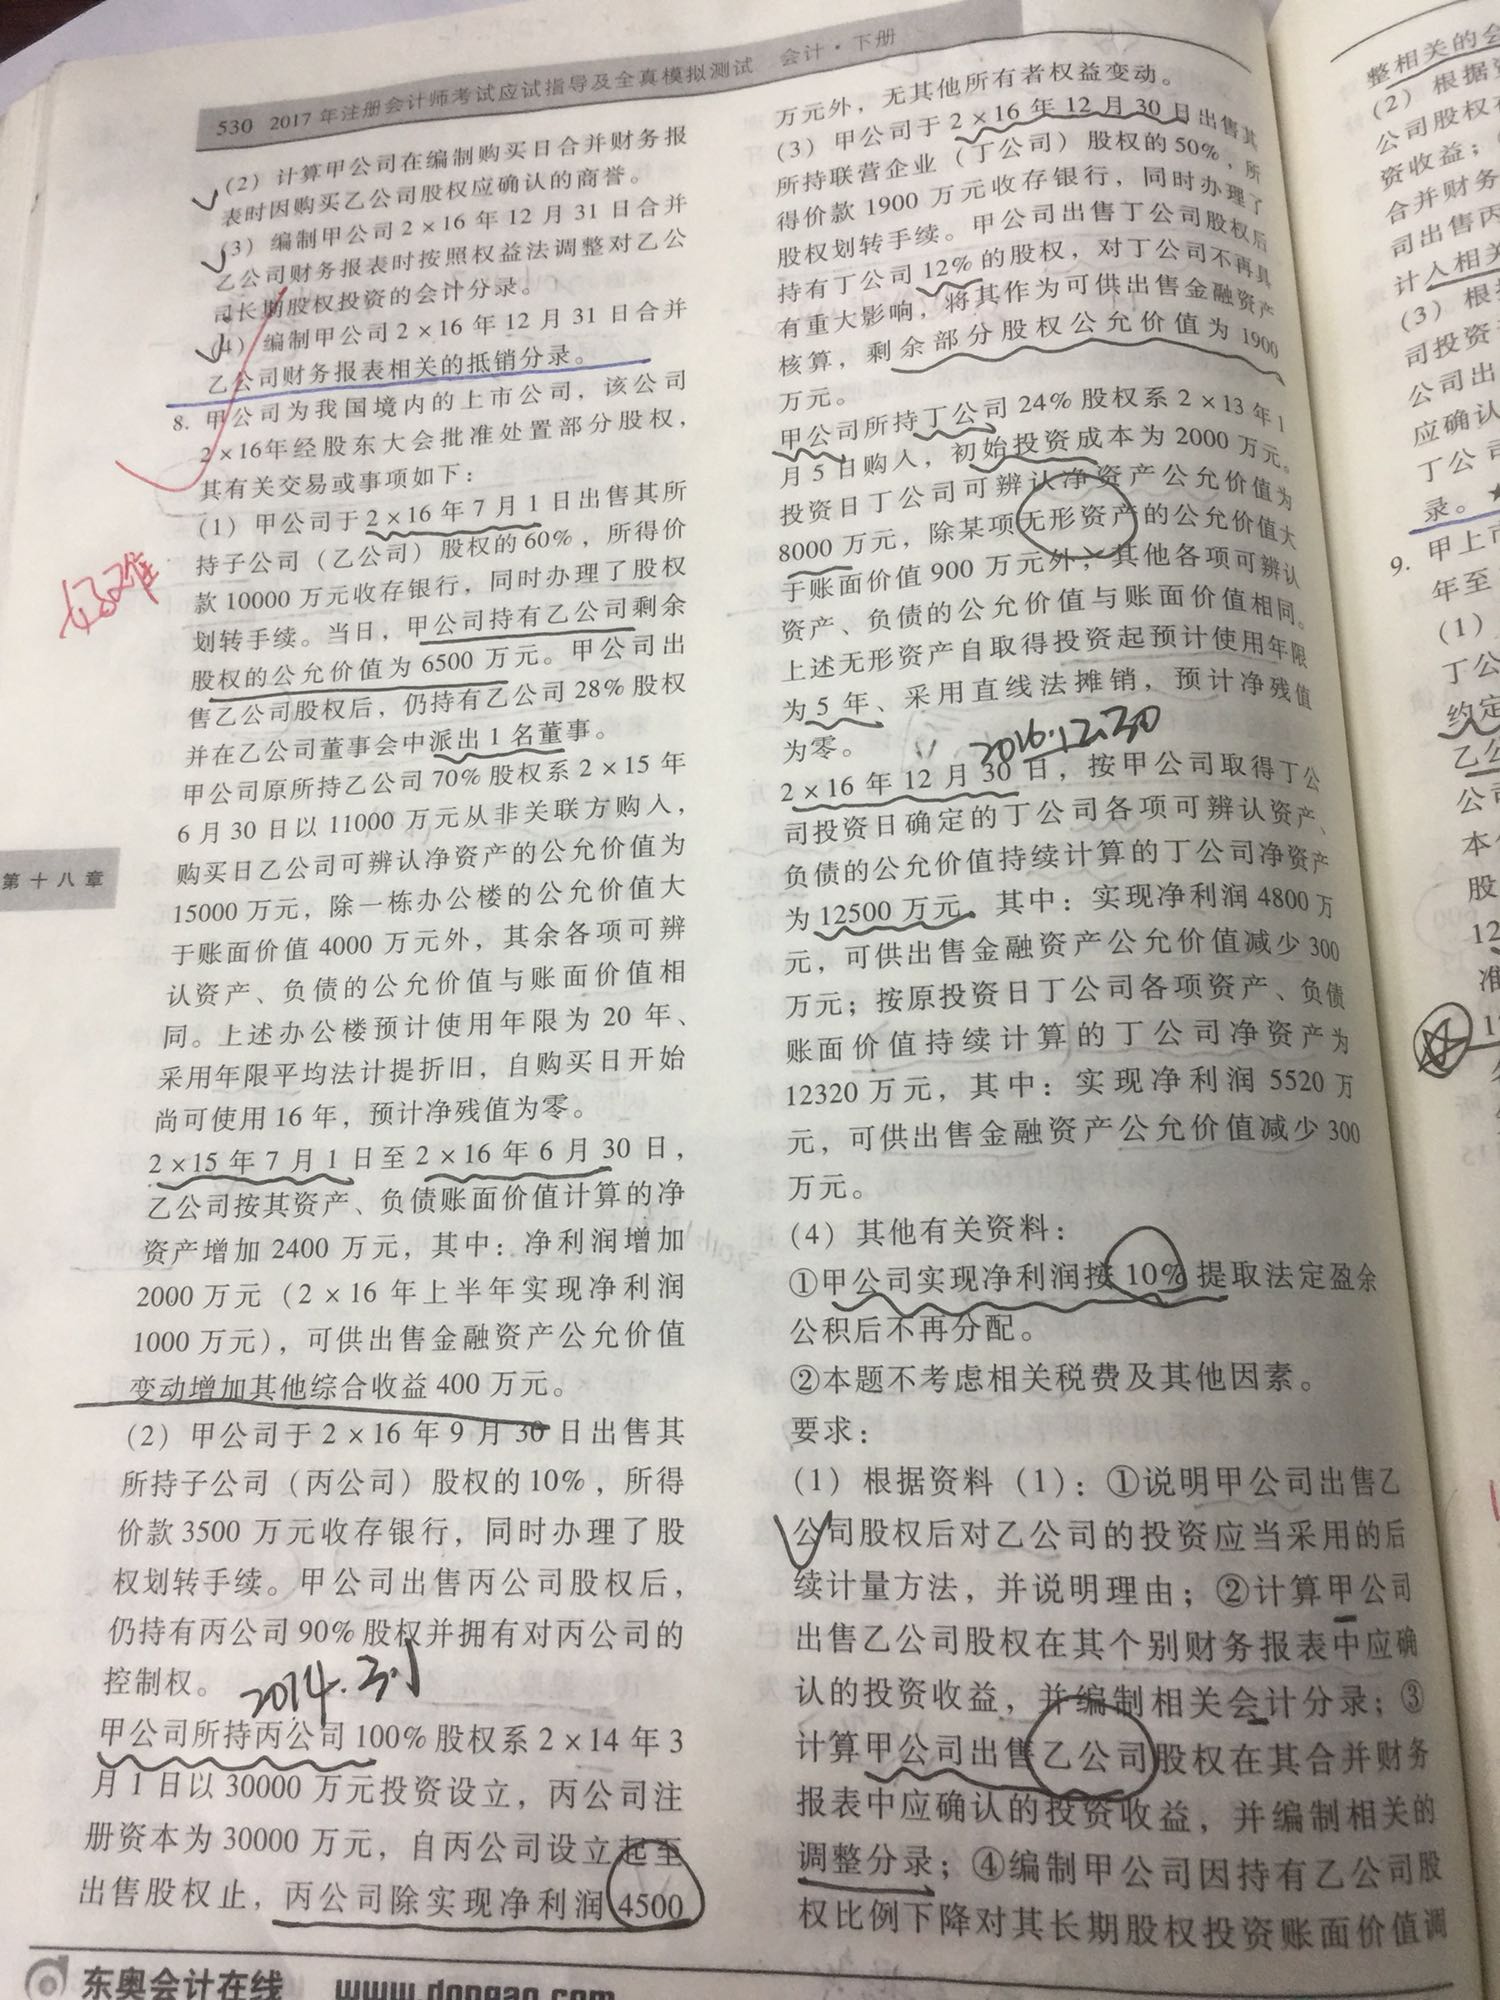 530 2017年注册会计师考试应试指导及全真模拟测试 会计·下册
(2) 计算甲公司在编制购买日合并财务报
表时因购买乙公司股权应确认的商誉。
(3) 编制甲公司2×16年12月31日合并
乙公司财务报表时按照权益法调整对乙公
司长期股权投资的会计分录。
(4) 编制甲公司2×16年12月31日合并
乙公司财务报表相关的抵销分录。
8. 甲公司为我国境内的上市公司，该公司
2×16年经股东大会批准处置部分股权，
其有关交易或事项如下：
(1) 甲公司于2×16年7月1日出售其所
持子公司（乙公司）股权的60%，所得价
款10000万元收存银行，同时办理了股权
划转手续。当日，甲公司持有乙公司剩余
股权的公允价值为6500万元。甲公司出
售乙公司股权后，仍持有乙公司28%股权
并在乙公司董事会中派出1名董事。
甲公司原所持乙公司70%股权系2×15年
6月30日以11000万元从非关联方购入，
购买日乙公司可辨认净资产的公允价值为
15000万元，除一栋办公楼的公允价值大
于账面价值4000万元外，其余各项可辨
认资产、负债的公允价值与账面价值相
同。上述办公楼预计使用年限为20年、
采用年限平均法计提折旧，自购买日开始
尚可使用16年，预计净残值为零。
2×15年7月1日至2×16年6月30日，
乙公司按其资产、负债账面价值计算的净
资产增加2400万元，其中：净利润增加
2000万元（2×16年上半年实现净利润
1000万元），可供出售金融资产公允价值
变动增加其他综合收益400万元。
(2) 甲公司于2×16年9月30日出售其
所持子公司（丙公司）股权的10%，所得
价款3500万元收存银行，同时办理了股
权划转手续。甲公司出售丙公司股权后，
仍持有丙公司90%股权并拥有对丙公司的
控制权。
2014.3.1
甲公司所持丙公司100%股权系2×14年3
月1日以30000万元投资设立，丙公司注
册资本为30000万元，自丙公司设立起至
出售股权止，丙公司除实现净利润4500
好难
第十八章
东奥会计在线 www.dongao.com
万元外，无其他所有者权益变动。
(3) 甲公司于2×16年12月30日出售其
所持联营企业（丁公司）股权的50%，所
得价款1900万元收存银行，同时办理了
股权划转手续。甲公司出售丁公司股权后
持有丁公司12%的股权，对丁公司不再具
有重大影响，将其作为可供出售金融资产
核算，剩余部分股权公允价值为1900
万元。
甲公司所持丁公司24%股权系2×13年1
月5日购入，初始投资成本为2000万元。
投资日丁公司可辨认净资产公允价值为
8000万元，除某项无形资产的公允价值大
于账面价值900万元外，其他各项可辨认
资产、负债的公允价值与账面价值相同。
上述无形资产自取得投资起预计使用年限
为5年、采用直线法摊销，预计净残值
为零。
2016.12.30
2×16年12月30日，按甲公司取得丁公
司投资日确定的丁公司各项可辨认资产、
负债的公允价值持续计算的丁公司净资产
为12500万元，其中：实现净利润4800万
元，可供出售金融资产公允价值减少300
万元；按原投资日丁公司各项资产、负债
账面价值持续计算的丁公司净资产为
12320万元，其中：实现净利润5520万
元，可供出售金融资产公允价值减少300
万元。
(4) 其他有关资料：
①甲公司实现净利润按10%提取法定盈余
公积后不再分配。
②本题不考虑相关税费及其他因素。
要求：
(1) 根据资料（1）：①说明甲公司出售乙
公司股权后对乙公司的投资应当采用的后
续计量方法，并说明理由；②计算甲公司
出售乙公司股权在其个别财务报表中应确
认的投资收益，并编制相关会计分录；③
计算甲公司出售乙公司股权在其合并财务
报表中应确认的投资收益，并编制相关的
调整分录；④编制甲公司因持有乙公司股
权比例下降对其长期股权投资账面价值调
整相关的会
(2) 根据
公司股权
资收益；
合并财务
司出售丙
计入相关
(3) 根
司投资
公司出
应确认
丁公司
录。
9. 甲上
年至
(1)
丁公
约定
乙公
公司
本
股
12
准